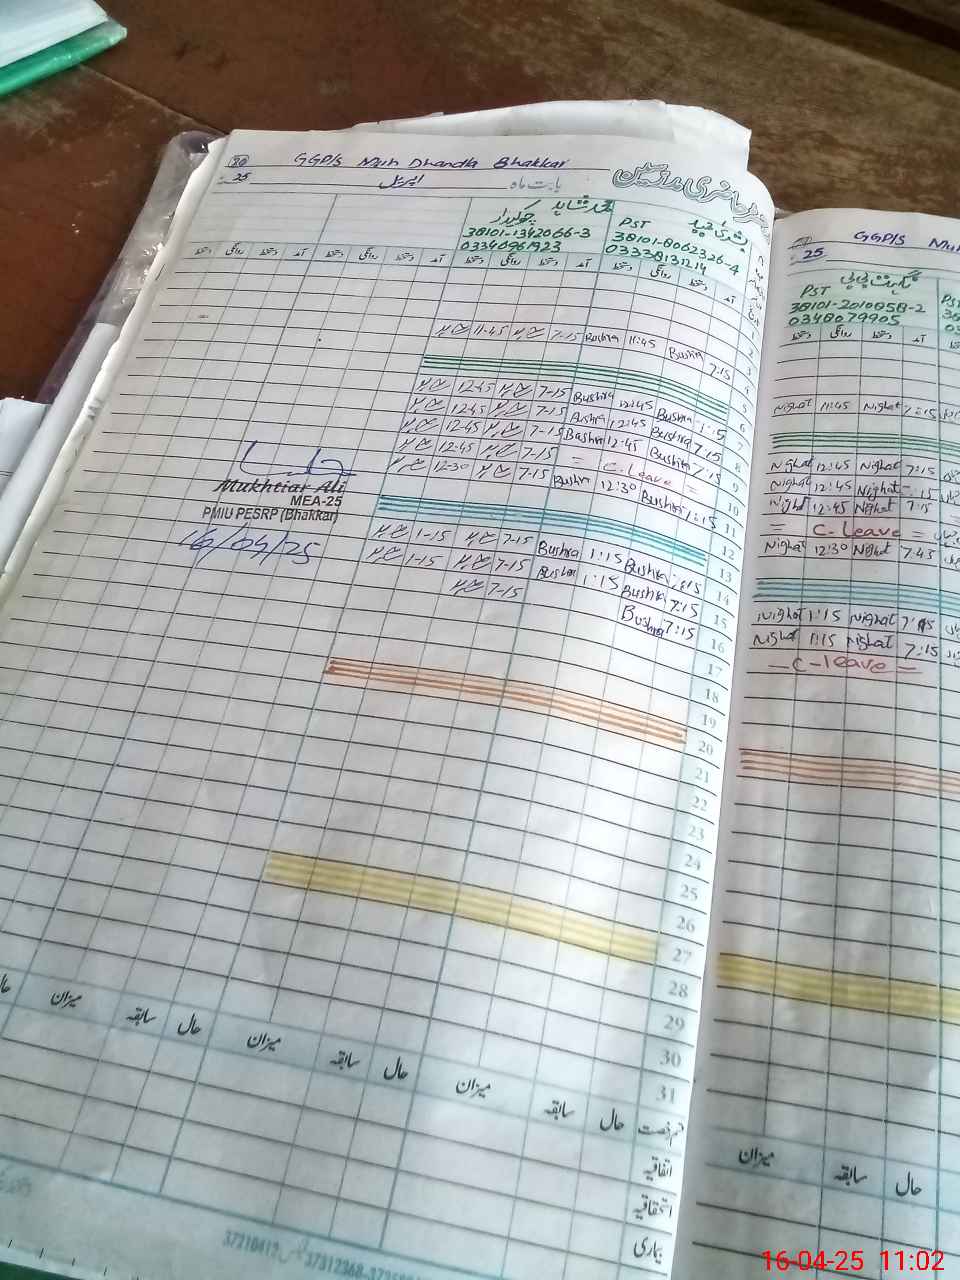 20 GGP/S Muh Dhandla Bhakkar
25 اپریل بابت ماہ
محمد شاہد
چوکیدار
38101-1342066-3
03340961923
بشریٰ مجید
PST
38101-8062326-4
03338131214
آمد دستخط روانگی دستخط آمد دستخط روانگی دستخط
1
2
3
7:15 Bushra 11:45 Bushra 7-15 11-45 4
5
6
7:15 Bushra 12:45 Bushra 7-15 12-45 7
7:15 Bushra 12:45 Bushra 7-15 12-45 8
7:15 Bushra 12:45 Bushra 7-15 12-45 9
= C.Leave = 7-15 12-45 10
7:15 Bushra 12:30 Bushra 7-15 12-30 11
12
13
Bushra 1:15 Bushra 7-15 1-15 14
7:15 Bushra 1:15 Bushra 7-15 1-15 15
7:15 Bushra 7-15 16
17
18
19
20
21
22
23
24
25
26
27
28
29
30
31
Mukhtiar Ali
MEA-25
PMIU PESRP (Bhakkar)
16/04/25
حال سابقہ میزان حال سابقہ میزان حال سابقہ میزان
اتفاقیہ
استحقاقیہ
بیماری
25 GGP/S
PST
38101-2010858-2
0348079905
Nighat 11:45 Nighat 7:15
Nighat 12:45 Nighat 7:15
Nighat 12:45 Nighat 7:15
Nighat 12:45 Nighat 7:15
= C-leave =
Nighat 12:30 Nighat 7:45
Nighat 1:15 Nighat 7:15
Nighat 1:15 Nighat 7:15
C-leave =
حال سابقہ میزان
16-04-25 11:02